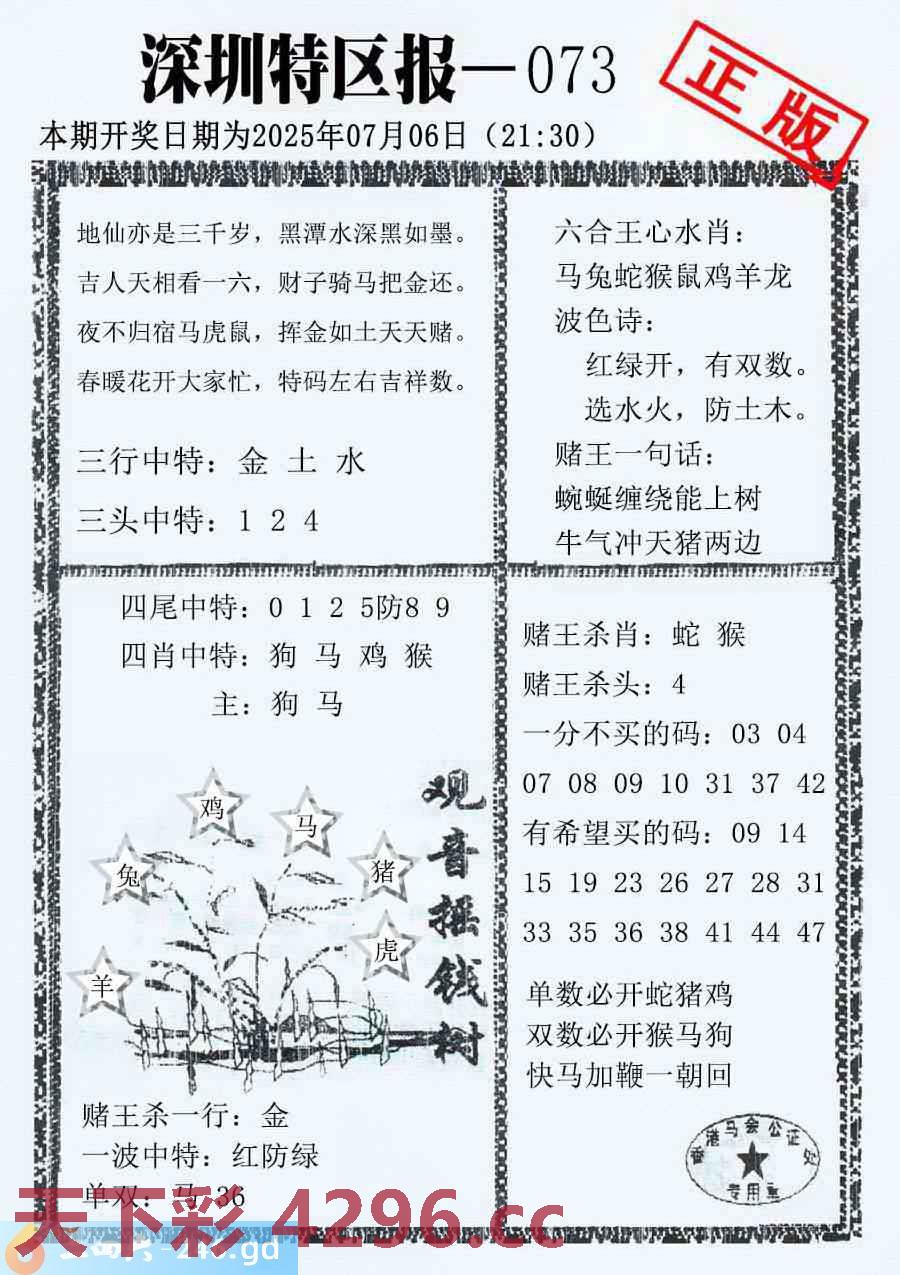 深圳特区报—073
正版
本期开奖日期为2025年07月06日（21:30）
地仙亦是三千岁，黑潭水深黑如墨。
吉人天相看一六，财子骑马把金还。
夜不归宿马虎鼠，挥金如土天天赌。
春暖花开大家忙，特码左右吉祥数。
三行中特：金 土 水
三头中特：1 2 4
六合王心水肖：
马兔蛇猴鼠鸡羊龙
波色诗：
红绿开，有双数。
选水火，防土木。
赌王一句话：
蜿蜒缠绕能上树
牛气冲天猪两边
四尾中特：0 1 2 5防8 9
四肖中特：狗 马 鸡 猴
主：狗 马
鸡
马
兔
猪
虎
羊
观音摇钱树
赌王杀一行：金
一波中特：红防绿
单双：马 36
赌王杀肖：蛇 猴
赌王杀头：4
一分不买的码：03 04
07 08 09 10 31 37 42
有希望买的码：09 14
15 19 23 26 27 28 31
33 35 36 38 41 44 47
单数必开蛇猪鸡
双数必开猴马狗
快马加鞭一朝回
香港马会公证处
专用章
天下彩 4296.cc